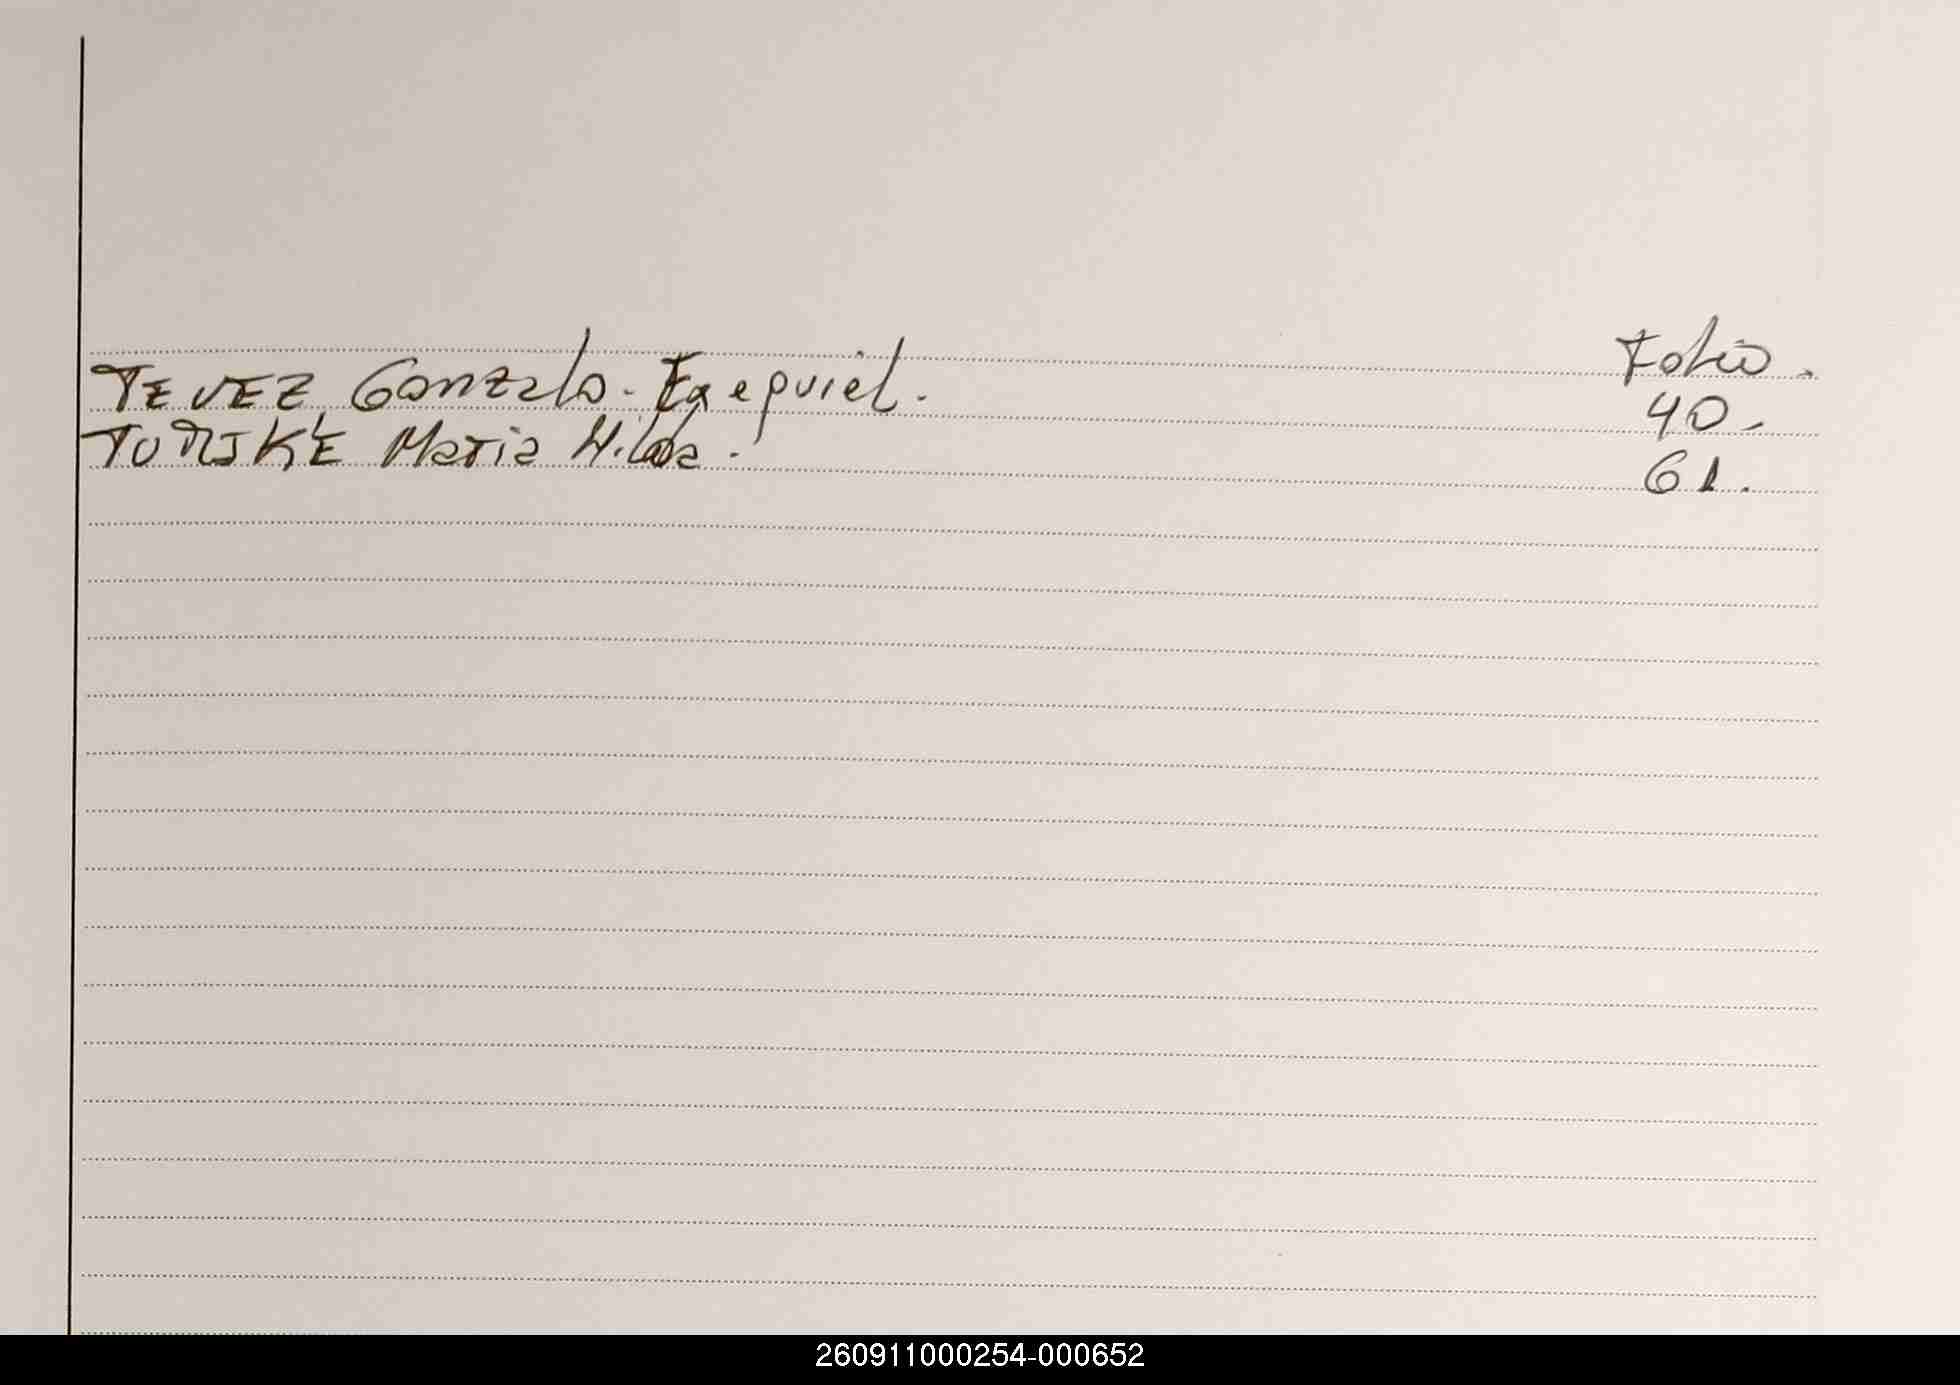 Folio.
TEVEZ, Gonzalo. Exequiel. 40-
TURSKE Maria Hilda. 61.
260911000254-000652